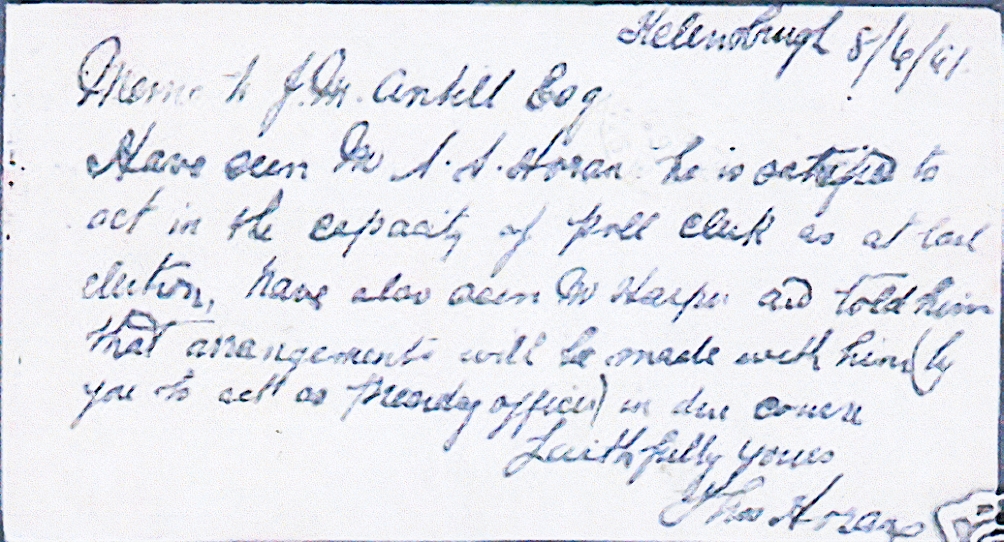 Helensburgh 8/6/41.
Memo to J. M. Antill Esq
Have seen Mr S. S. Horan he is satisfied to
act in the capacity of poll clerk as at last
election, have also seen Mr Harper and told him
that arrangements will be made with him (by
you to act as Presidg officer) in due course
Faithfully yours
Thos Horan